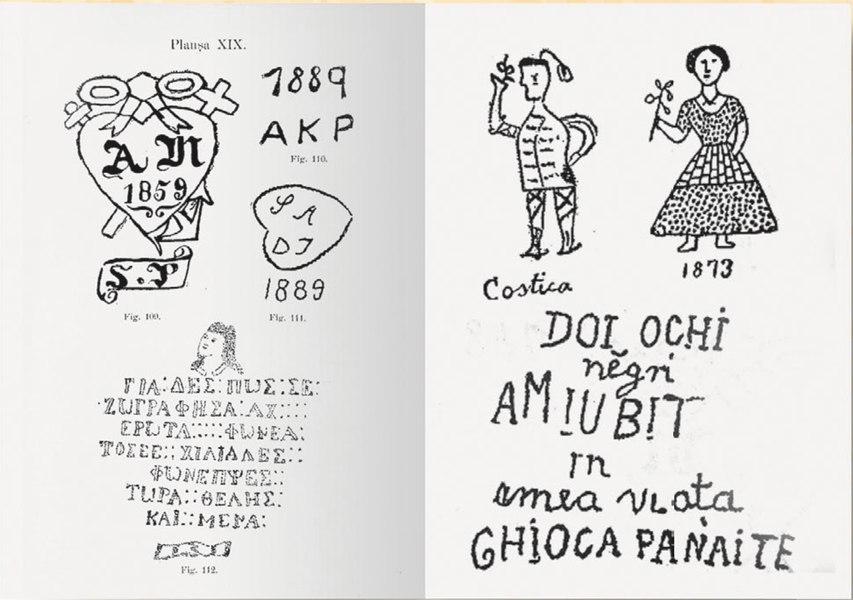 Planșa XIX.
A N
1859
S.P
Fig. 109.
1889
AKP
Fig. 110.
S A
D I
1889
Fig. 111.
ΓΙΑ:ΔΕΣ:ΠΩΣ:ΣΕ:
ΖΩΓΡΑΦΗΣΑ:ΑΧ::::
ΕΡΩΤΑ:::::ΦΩΝΕΑ:
ΤΟΣΕΣ::ΧΙΛΙΑΔΕΣ::
ΦΩΝΕΠΨΕΣ::
ΤΩΡΑ::ΘΕΛΗΣ:
ΚΑΙ::ΜΕΡΑ:
Fig. 112.
Costica
1873
DOI OCHI
nĕgri
AM IUBIT
in
amea vιața
GHIOCA PANAITE